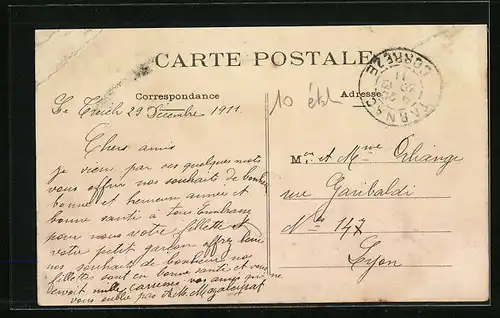 CARTE POSTALE
Correspondance
Adresse
10 étbl
CORRÈZE
Le Treich 29 Décembre 1911
Chers amis
je vien par ces quelques mots
vous offrir nos souhaits de bonheur
bonne et heureuse année et
bonne santé à tous
pour nous votre fillette et
votre petit garçon offrez leur
nos souhaits de bonheur nos
fillettes sont en bonne santé et vous
envoit mille caresses vos amis qui ne
vous oublie pas
Mr et Mme Orliange
rue Garibaldi
No 147
Lyon